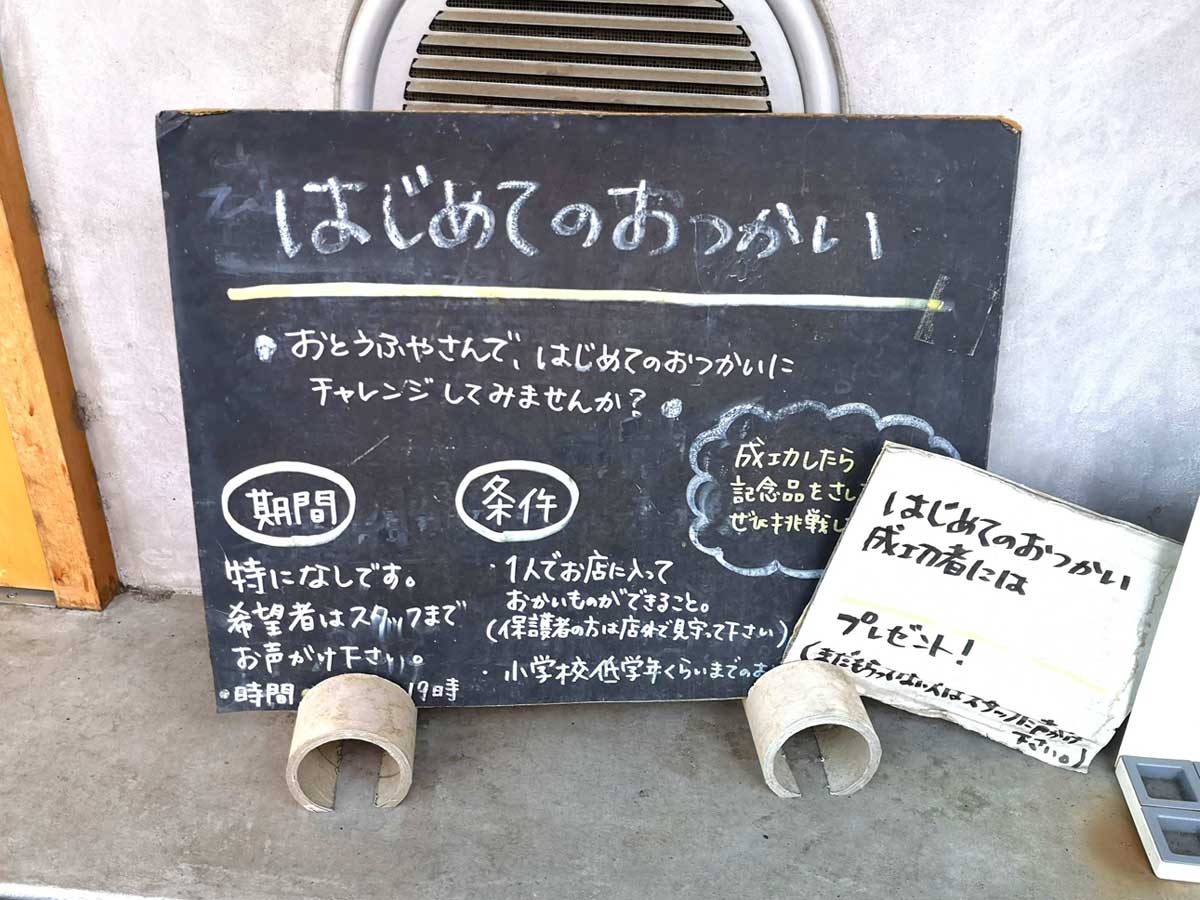 はじめてのおつかい
おとうふやさんで、はじめてのおつかいに
チャレンジしてみませんか?
期間
特になしです。
希望者はスタッフまで
お声がけ下さい。
・時間
19時
条件
・1人でお店に入って
おかいものができること。
(保護者の方は店外で見守って下さい)
・小学校低学年くらいまでのお
成功したら
記念品をさし
ぜひ挑戦し
はじめてのおつかい
成功者には
プレゼント!
(まだもらっていない人はスタッフに声かけ
下さい。)